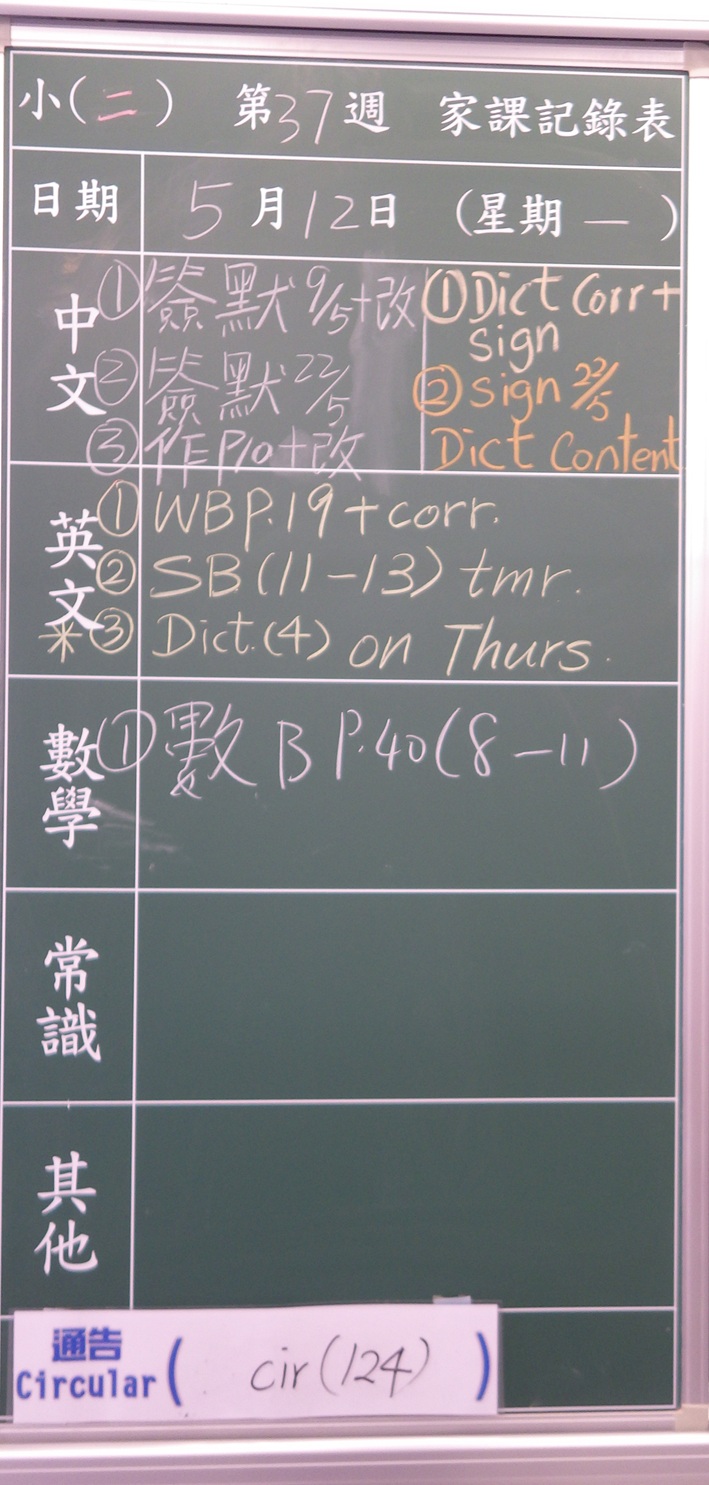 小(二) 第37週 家課記錄表
日期 5月12日 (星期一)
中文
① 簽默 9/5+改
② 簽默 22/5
③ 作P10+改
① Dict Corr +
sign
② sign 22/5
Dict Content
英文
① WB P.19 + corr.
② SB (11-13) tmr.
*③ Dict. (4) on Thurs.
數學
① 數 B P.40 (8-11)
常識
其他
通告
Circular ( cir (124) )